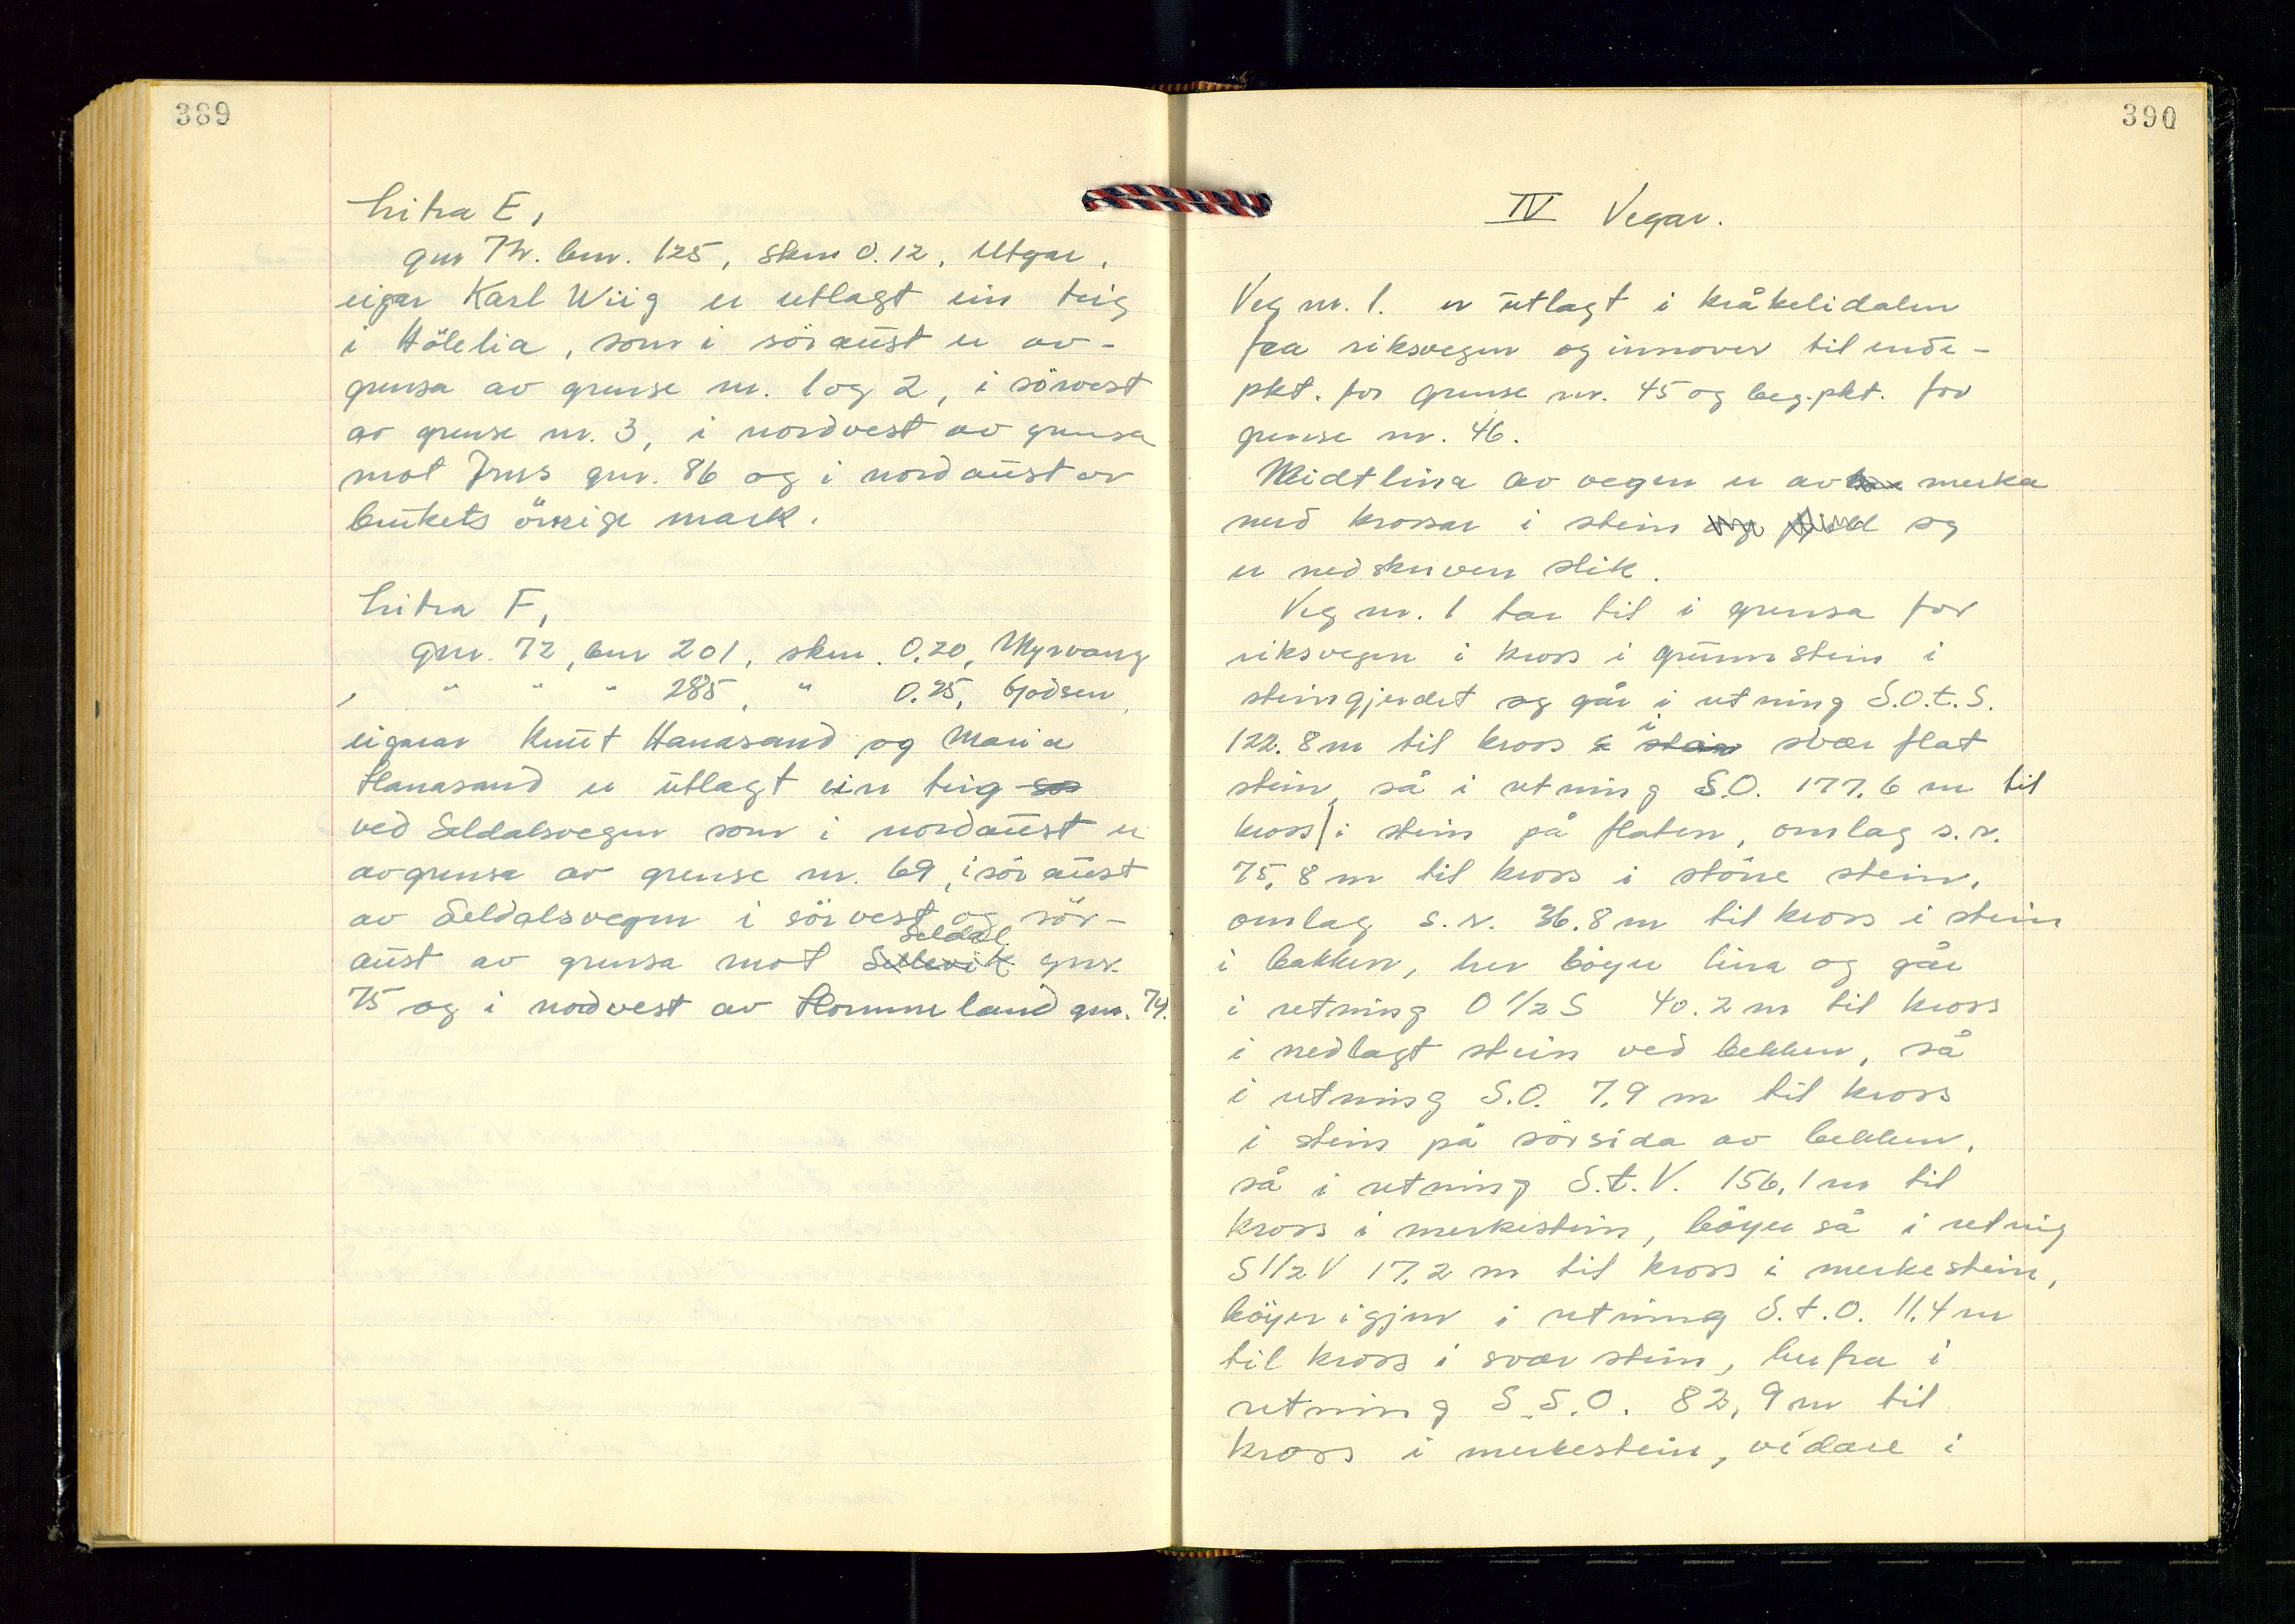 389
Litra E,
gnr 72. bnr. 125, skm 0.12, Utgar,
eigar Karl Wiig er utlagt ein teig
i Hölelia, som i söraust er av-
grensa av grense nr. 1 og 2, i sörvest
av grense nr. 3, i nordvest av grensa
mot Frus gnr. 86 og i nordaust av
brukets övrige mark.
Litra F,
gnr. 72, bnr 201, skm. 0.20, Myrvang
" " " 285, " 0.25, Gjödsen,
eigarar Knut Hanasand og Maria
Hanasand er utlagt ein teig so
ved Seldalsvegen som i nordaust er
avgrensa av grense nr. 69, i söraust
av Seldalsvegen i sörvest og sör-
aust av grensa mot Sellevik Seldal gnr.
75 og i nordvest av Hommeland gnr. 74.
390
IV Vegar.
Veg nr. 1. er utlagt i Kråkelidalen
fra riksvegen og innover til ende-
pkt. for grense nr. 45 og beg.pkt. for
grense nr. 46.
Midtlina av vegen er av merka
med krossar i stein og fjell og
er nedskriven slik.
Veg nr. 1 tar til i grensa for
riksvegen i kross i grunnstein i
steingjerdet og går i retning S.O.t.S.
122.8 m til kross i stein svær flat
stein, så i retning S.O. 177.6 m til
kross i stein på flaten, omlag s.r.
75,8 m til kross i större stein,
omlag s.r. 36.8 m til kross i stein
i bakken, her böyer lina og går
i retning O 1/2 S 40.2 m til kross
i nedlagt stein ved bekken, så
i retning S.O. 7,9 m til kross
i stein på sörsida av bekken,
så i retning S.t.V. 156,1 m til
kross i merkestein, böyer så i retnig
S 1/2 V 17,2 m til kross i merkestein,
böyer igjen i retning S.t.O. 11,4 m
til kross i svær stein, herfra i
retning S.S.O. 82,9 m til
kross i merkestein, vidare i